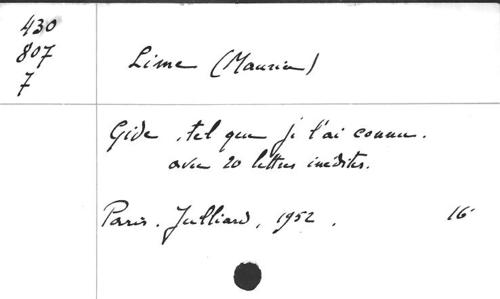 430
807
7
Lime (Maurice)
Gide, tel que je l'ai connu.
avec 20 lettres inédites.
Paris. Julliard, 1952. 16°